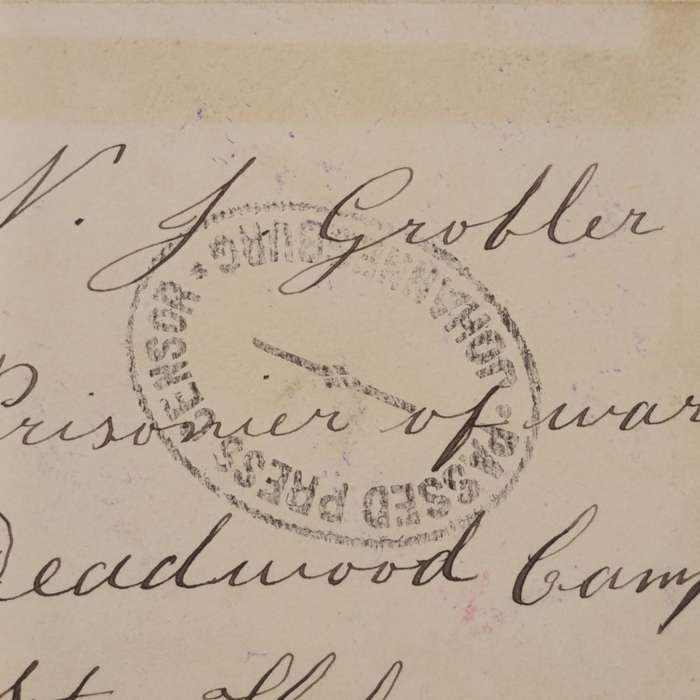 N. J Grobler
Prisonier of war
Deadwood Camp
St. Hel
JOHANNESBURG
PASSED PRESS CENSOR